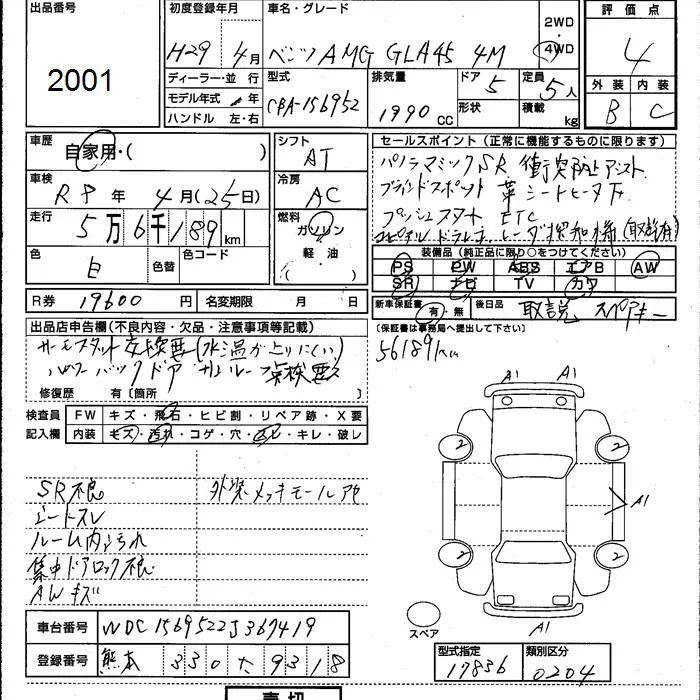 出品番号
2001
初度登録年月
H29 4月
車名・グレード
ベンツ AMG GLA45 4M
2WD
4WD
評価点
4
ディーラー・並行
モデル年式 年
ハンドル 左・右
型式
CBA-156952
排気量
1990 cc
ドア 5
形状
定員 5人
積載 kg
外装 内装
B C
車歴
自家用・( )
車検
R8年 4月(25日)
走行
5万6千189km
色
白
色替
色コード
シフト
AT
冷房
AC
燃料
ガソリン
軽油
( )
セールスポイント(正常に機能するものに限ります)
パノラマミックSR 衝突防止アシスト
ブラインドスポット 革シートヒーター
プッシュスタート ETC
装備品(純正品に限り○をつけてください)
PS PW ABS エアB AW
SR ナビ TV カワ
R券 19600円
名変期限 月 日
新車保証書
有・無
後日品
取説 スペアキー
(保証書は事務局へ提出して下さい)
56189km
出品店申告欄(不良内容・欠品・注意事項等記載)
サーモスタット点検要(水温が上りにくい)
パワーバックドア
修復歴 有〔箇所 〕
検査員
記入欄
FW キズ・飛石・ヒビ割・リペア跡・X要
内装 キズ・汚れ・コゲ・穴・スレ・キレ・破レ
SR不良
シートスレ
ルーム内汚れ
集中ドアロック不良
AWキズ
外装メッキモール
A1 A1
2 2
A1
2 2
A1
スペア
車台番号 WDC1569522J367419
登録番号 熊本 330 9318
型式指定
17836
類別区分
0204
売切